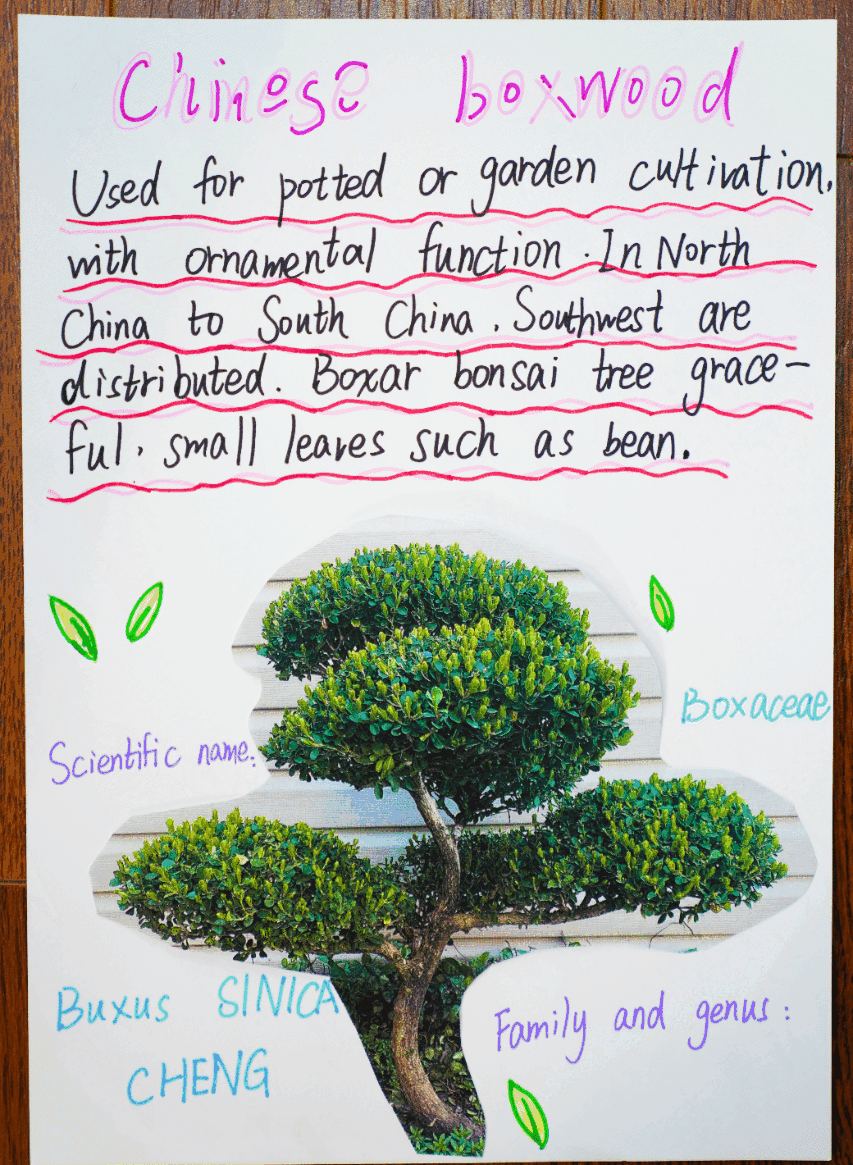 Chinese boxwood
Used for potted or garden cultivation,
with ornamental function. In North
China to South China. Southwest are
distributed. Boxar bonsai tree grace-
ful, small leaves such as bean.
Scientific name:
Buxus SINICA
CHENG
Boxaceae
Family and genus: